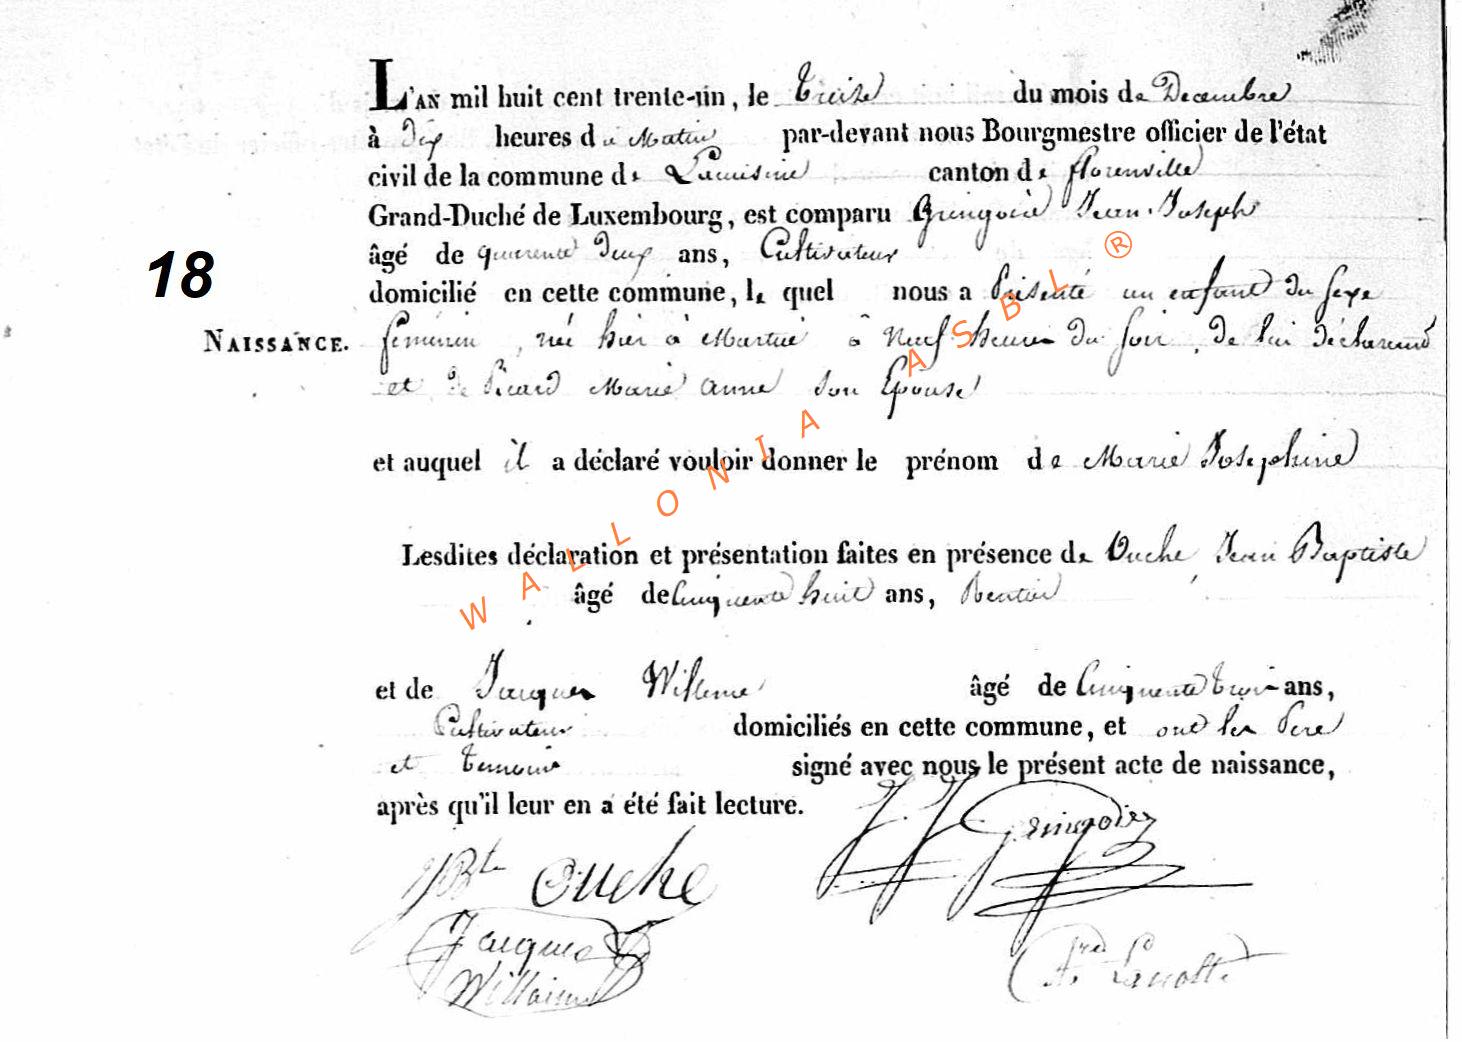 L'AN mil huit cent trente-un, le treize du mois de Decembre
à dix heures du Matin par-devant nous Bourgmestre officier de l'état
civil de la commune de Lacuisine canton de florenville
Grand-Duché de Luxembourg, est comparu Gringoire Jean Joseph
âgé de quarente deux ans, Cultivateur
18
domicilié en cette commune, le quel nous a Présenté un enfant du sexe
NAISSANCE. féminin, née hier à Martué à Neuf heures du soir, de lui déclarand
et de Picard Marie anne son Epouse
et auquel il a déclaré vouloir donner le prénom de Marie Josephine
Lesdites déclaration et présentation faites en présence de Ouche Jean Baptiste
âgé de Cinquente huit ans, Rentier
et de Jacques Willeme âgé de Cinquente trois ans,
Cultivateur domiciliés en cette commune, et ont les Pere
et temoins signé avec nous le présent acte de naissance,
après qu'il leur en a été fait lecture.
JJ Gringoire
JBte Ouche
Jacques
Willaime
WALLONIA ASBL ®